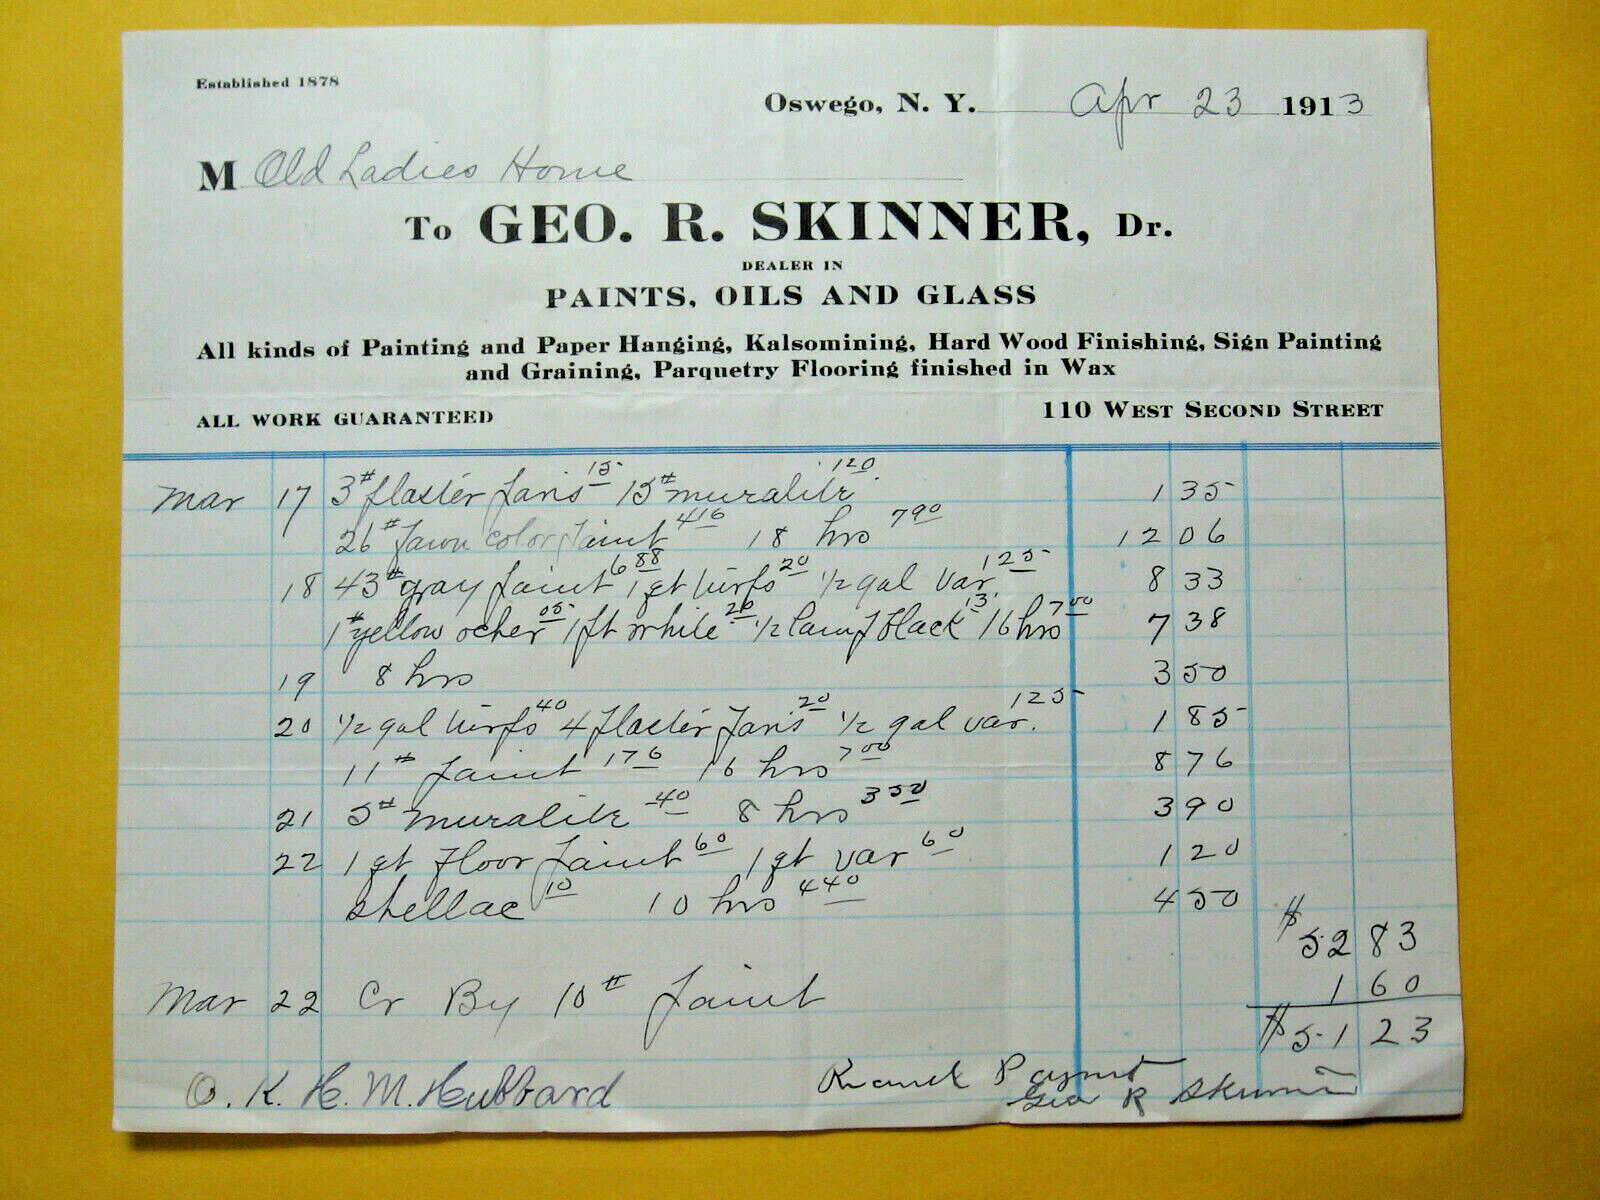 Established 1878
Oswego, N. Y. Apr 23 1913
M Old Ladies Home
To GEO. R. SKINNER, Dr.
DEALER IN
PAINTS, OILS AND GLASS
All kinds of Painting and Paper Hanging, Kalsomining, Hard Wood Finishing, Sign Painting
and Graining, Parquetry Flooring finished in Wax
ALL WORK GUARANTEED 110 WEST SECOND STREET
Mar 17 3# Plaster Paris 15 15# muralite 120 1 35
26# Fawn color Paint 416 18 hrs 790 12 06
18 43# gray Paint 688 1 qt turps 20 1/2 gal var 125 8 33
1# yellow ocher 05 1 pt white 20 1/2 Lamp Black 13 16 hrs 700 7 38
19 8 hrs 3 50
20 1/2 gal turps 40 4 Plaster Paris 20 1/2 gal var. 125 1 85
11# Paint 176 16 hrs 700 8 76
21 5# muralite 40 8 hrs 350 3 90
22 1 qt Floor Paint 60 1 qt var 60 1 20
Shellac 10 10 hrs 440 4 50
$ 52 83
Mar 22 Cr By 10# Paint 1 60
$ 51 23
O. K. H. M. Hubbard
Received Payment
Geo R Skinner